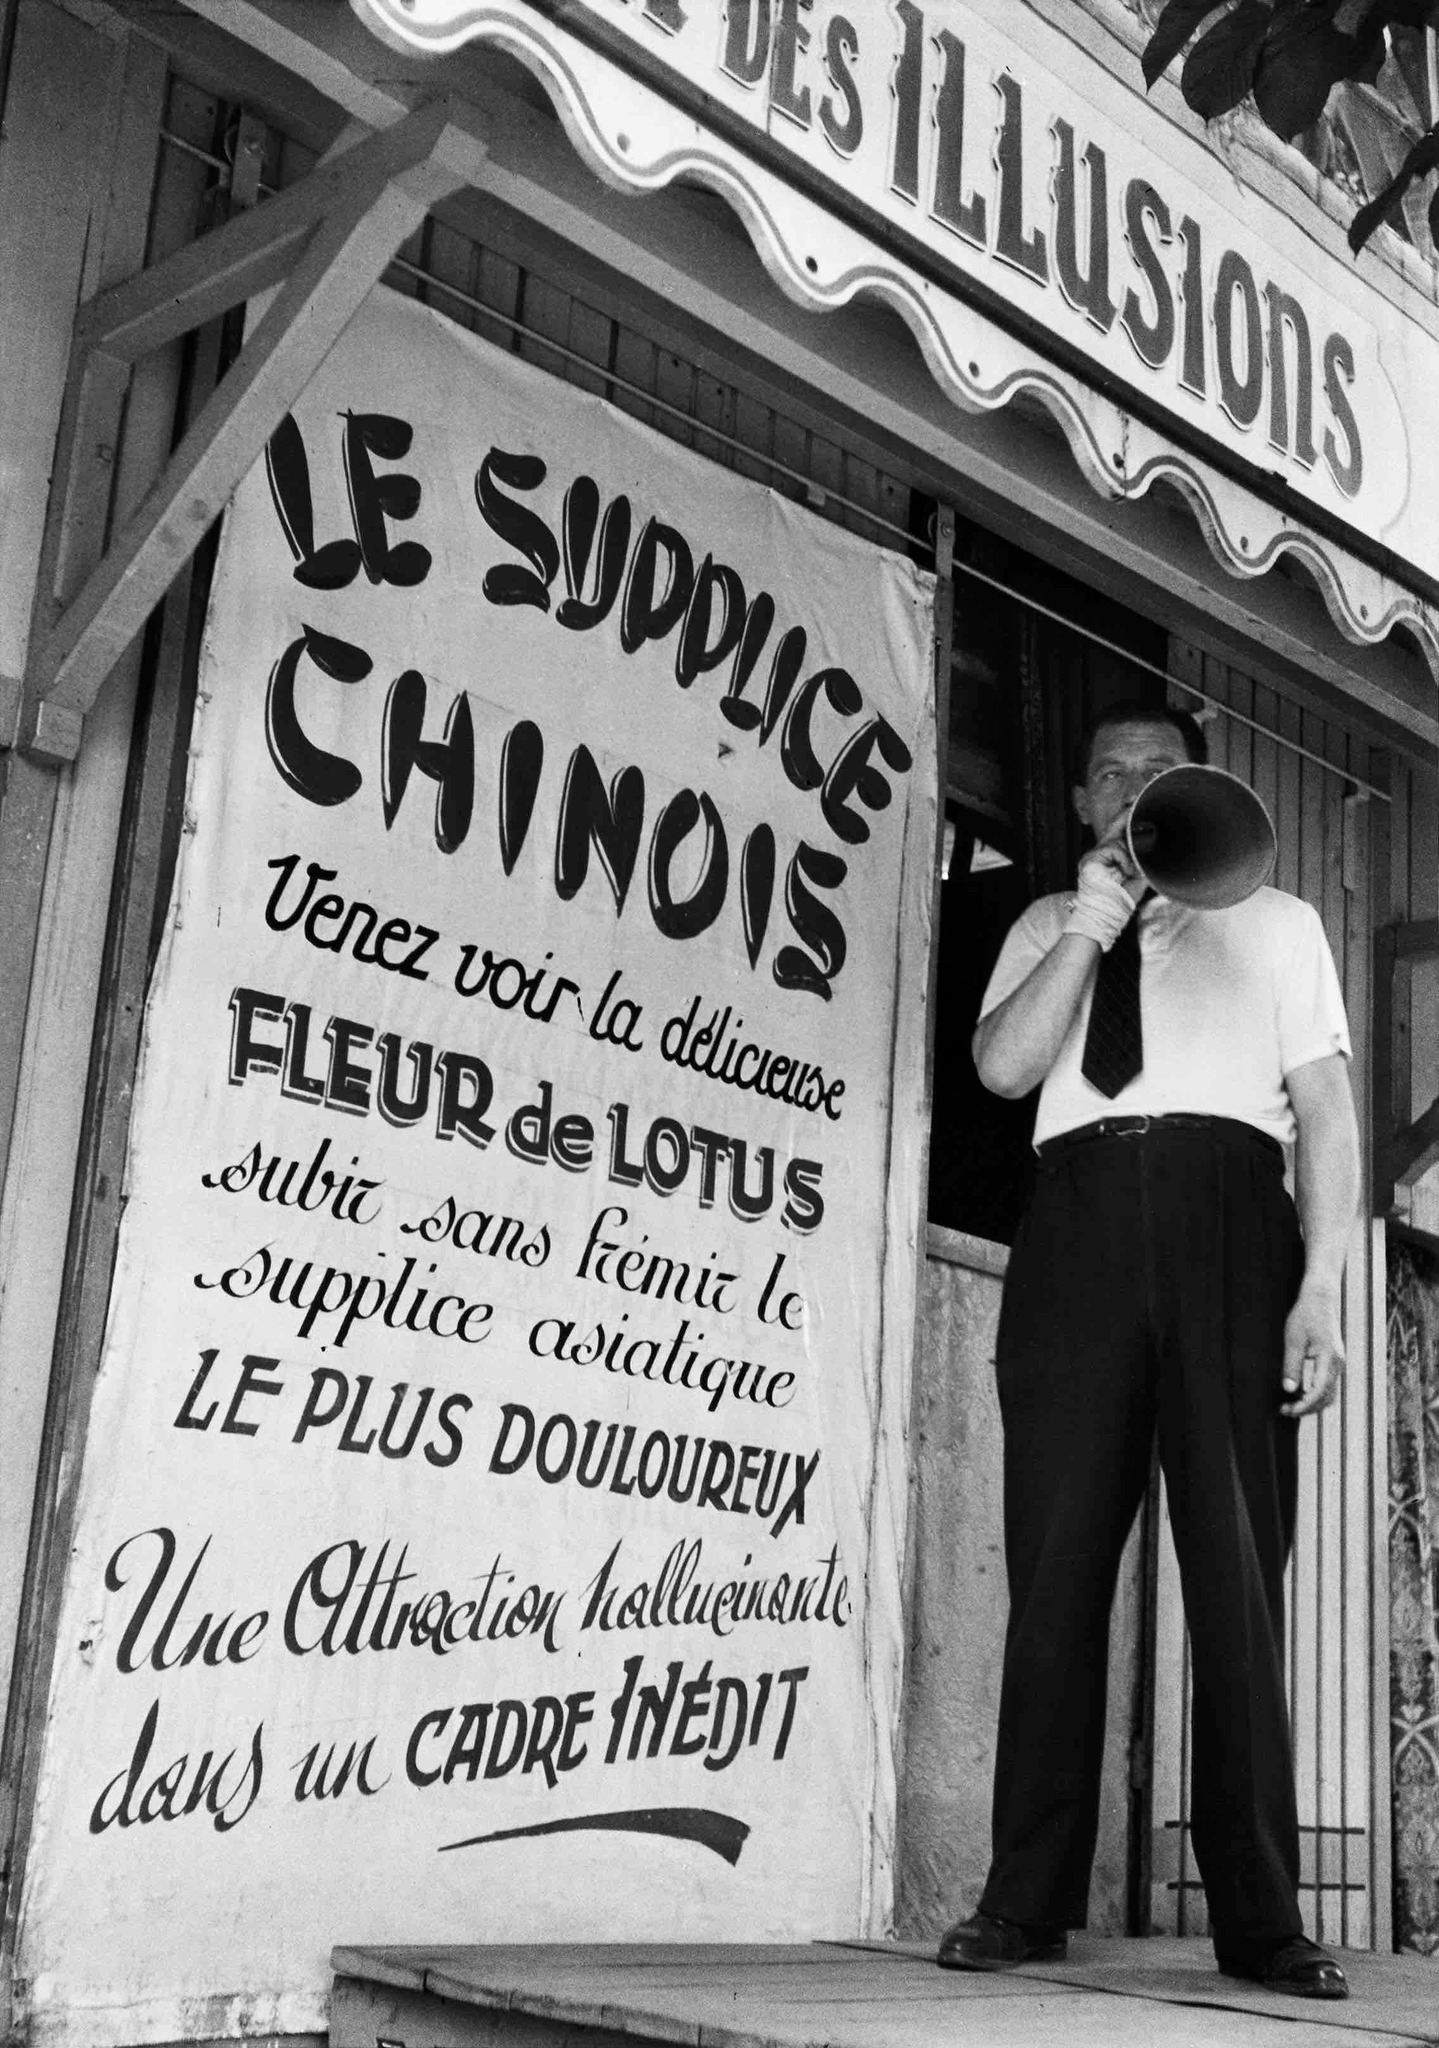 DES ILLUSIONS
LE SUPPLICE
CHINOIS
Venez voir la délicieuse
FLEUR de LOTUS
subir sans frémir le
supplice asiatique
LE PLUS DOULOUREUX
Une Attraction hallucinante
dans un CADRE INÉDIT